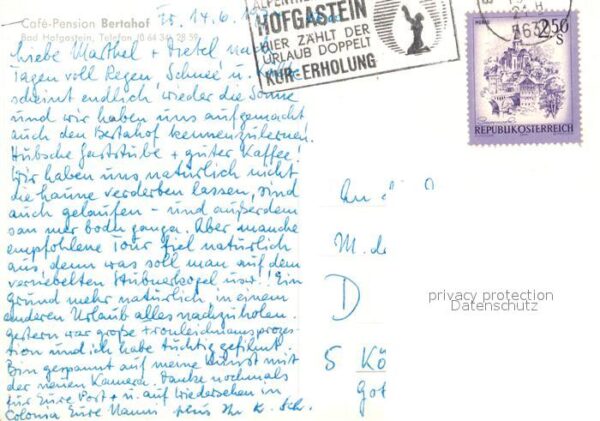 Café-Pension Bertahof
Bad Hofgastein, Telefon (0 64 34) 28 59
HOFGASTEIN
HIER ZÄHLT DER
URLAUB DOPPELT
KUR-ERHOLUNG
2.50
S
REPUBLIK ÖSTERREICH
Liebe Marthel + nach
Tagen voll Regen, Schnee u.
scheint endlich wieder die Sonne
und wir haben uns aufgemacht
auch den Bertahof kennenzulernen.
Hübsche Gaststube + guter Kaffee!
Wir haben uns natürlich nicht
die Laune verderben lassen, sind
auch gelaufen - und außerdem
san mer bodn ganga. Aber manche
empfohlene Tour fiel natürlich
aus, denn was soll man auf dem
vernebelten Stubnerkogel usw.! Ein
Grund mehr natürlich, in einem
anderen Urlaub alles nachzuholen.
Gestern war große Fronleichnamsprozes-
sion und ich habe tüchtig gefilmt.
Bin gespannt auf meine Kunst mit
der neuen Kamera. Danke nochmals
für Eure Post + u. auf Wiedersehen in
Colonia Eure Hanni plus Ihr K. Sch.
An
M. de
D
5 Kö
privacy protection
Datenschutz